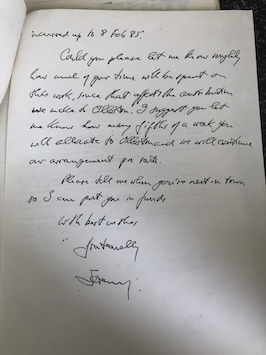 incurred up to 8 Feb 85.
Could you please let me know roughly
how much of your time will be spent on
this work, since that affects the contribution
we make to Ollerton. I suggest you let
me know how many fifths of a week you
will allocate to and we will continue
our arrangement pro rata.
Please tell me when you're next in town
so I can put you in funds.
With best wishes
Fraternally
Jeremy